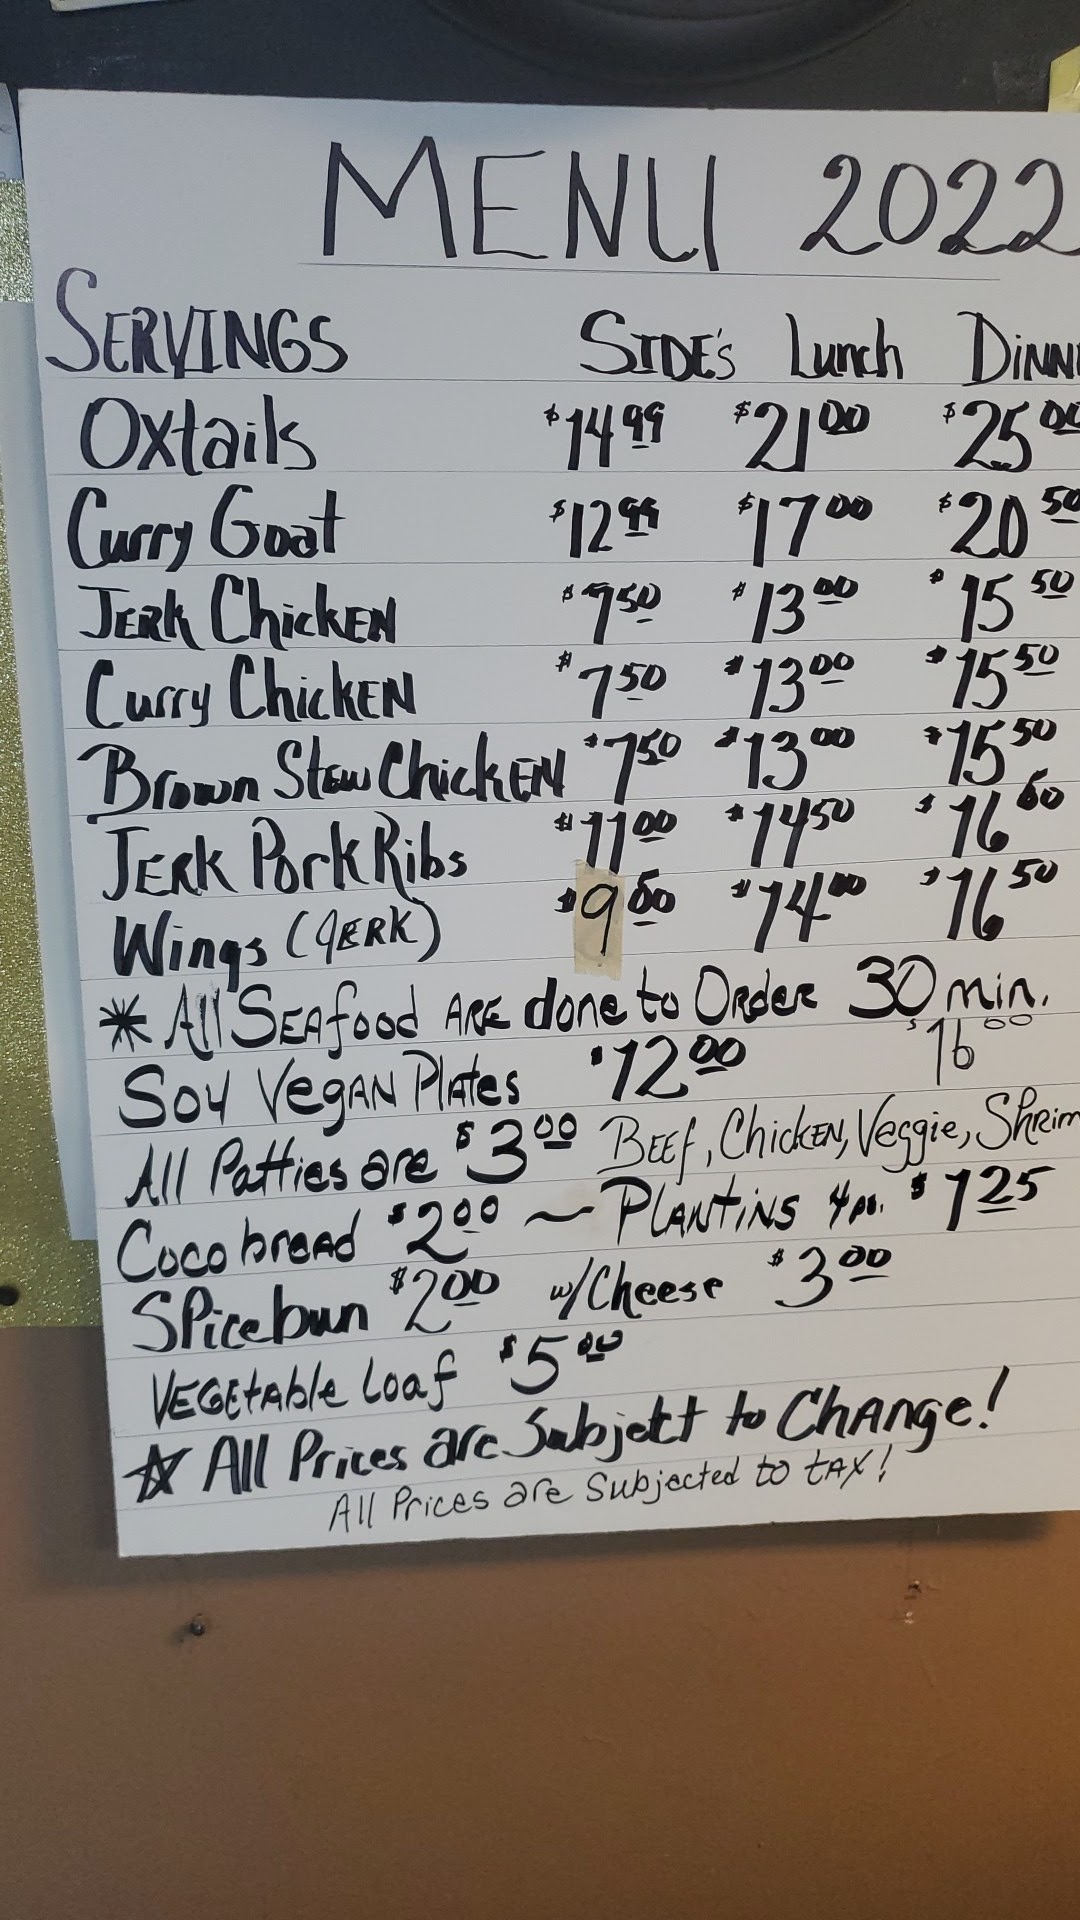 MENU 2022
SERVINGS SIDE's Lunch DINN
Oxtails $14.99 $21.00 $25.00
Curry Goat $12.99 $17.00 $20.50
JERK ChicKEN $7.50 $13.00 $15.50
Curry ChicKEN $7.50 $13.00 $15.50
Brown Stew ChicKEN $7.50 $13.00 $15.50
JERK Pork Ribs $11.00 $14.50 $16.60
Wings (JERK) $9.50 $14.00 $16.50
* All SEAfood ARE done to OrdER 30 min.
SOY VEGAN PlAtes $12.00 $16.00
All Patties are $3.00 BEEf, ChicKEN, Veggie, ShRim
Coco breAd $2.00 ~ PLANTiNS 4 pc. $1.25
SPice bun $2.00 w/Cheese $3.00
VEGEtAble Loaf $5.00
☆ All Prices are Subjett to ChANge!
All Prices are Subjected to tAX!